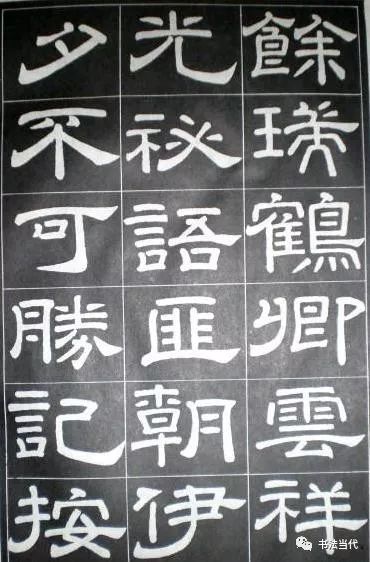 餘瑞鶴卿雲祥
光祕語匪朝伊
夕不可勝記按
书法当代